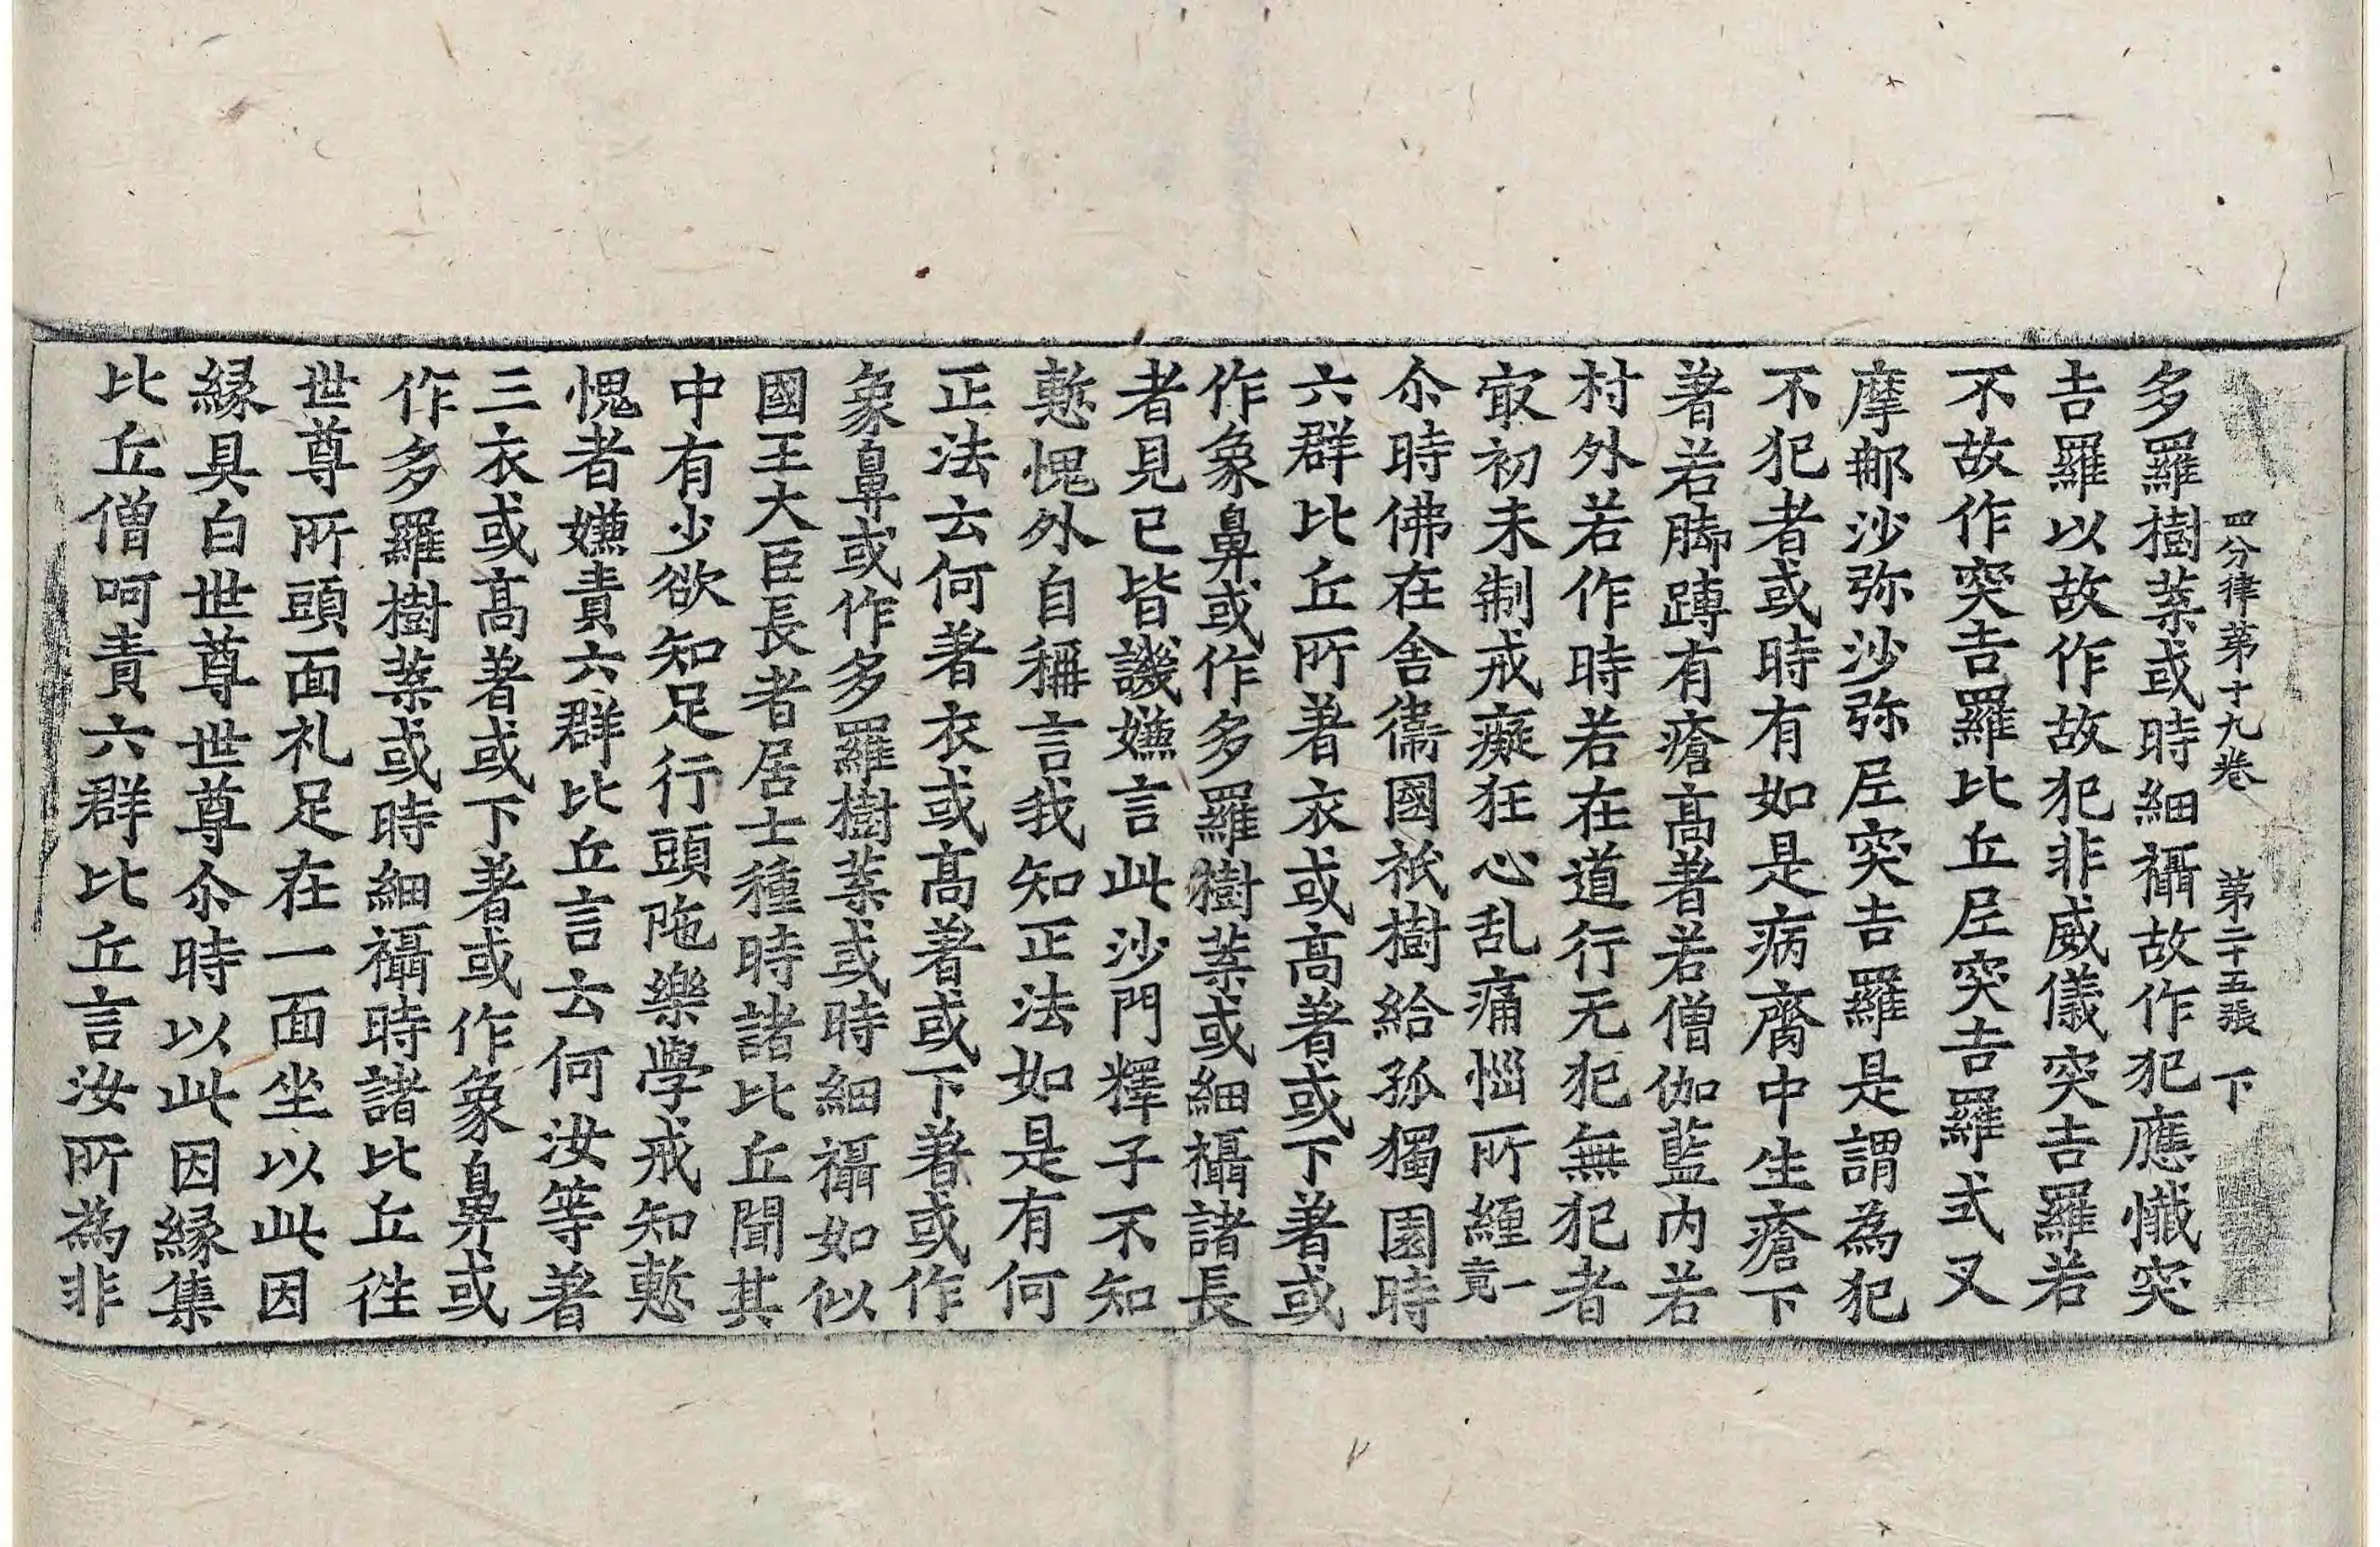 四分律第十九卷 第二十五張 下
多羅樹葉或時細襵故作犯應懺突
吉羅以故作故犯非威儀突吉羅若
不故作突吉羅比丘尼突吉羅式叉
摩那沙弥沙弥尼突吉羅是謂為犯
不犯者或時有如是病臍中生瘡下
著若脚蹲有瘡高著若僧伽藍內若
村外若作時若在道行无犯無犯者
㝡初未制戒癡狂心乱痛惱所纏竟一
尒時佛在舍衞國祇樹給孤獨園時
六群比丘所著衣或高著或下著或
作象鼻或作多羅樹葉或細襵諸長
者見已皆譏嫌言此沙門釋子不知
慙愧外自稱言我知正法如是有何
正法云何著衣或高著或下著或作
象鼻或作多羅樹葉或時細襵如似
國王大臣長者居士種時諸比丘聞其
中有少欲知足行頭陁樂學戒知慙
愧者嫌責六群比丘言云何汝等著
三衣或高著或下著或作象鼻或
作多羅樹葉或時細襵時諸比丘徃
世尊所頭面礼足在一面坐以此因
緣具白世尊世尊尒時以此因緣集
比丘僧呵責六群比丘言汝所為非